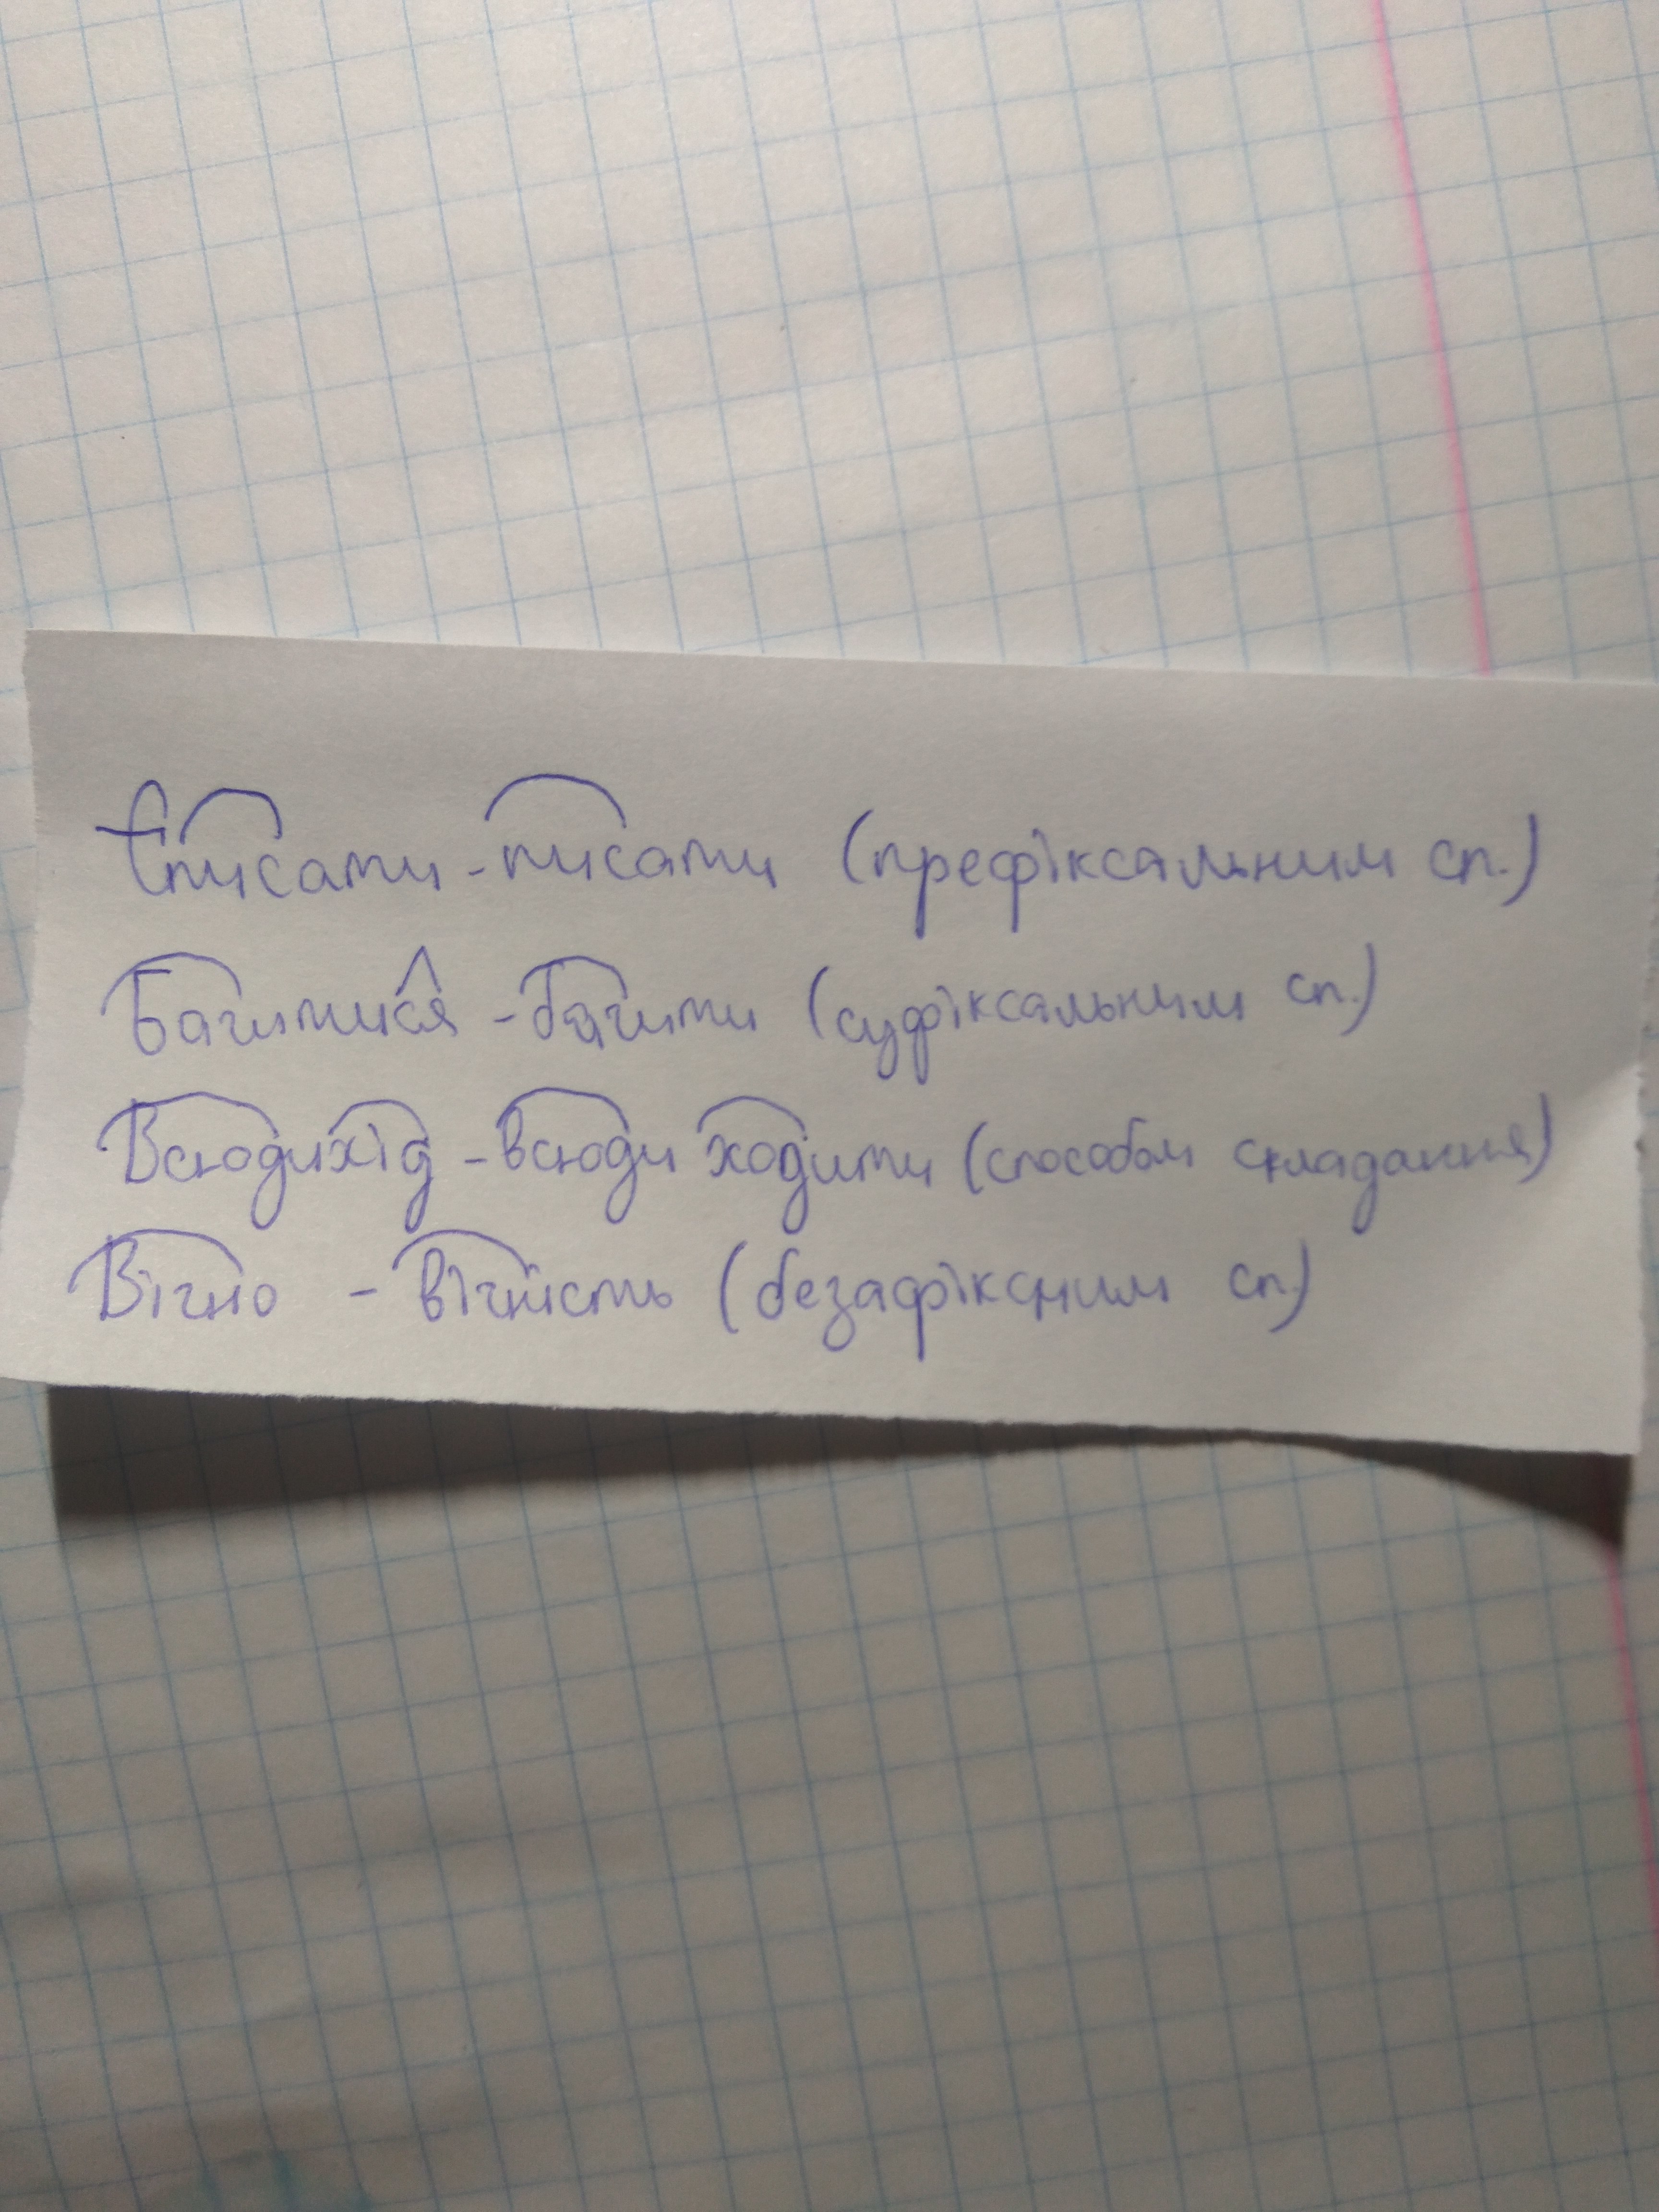 Списати - писати (префіксальним сп.)
Бачитися - бачити (суфіксальним сп.)
Всюдихід - всюди ходити (способом складання)
Вічно - вічність (безафіксним сп.)